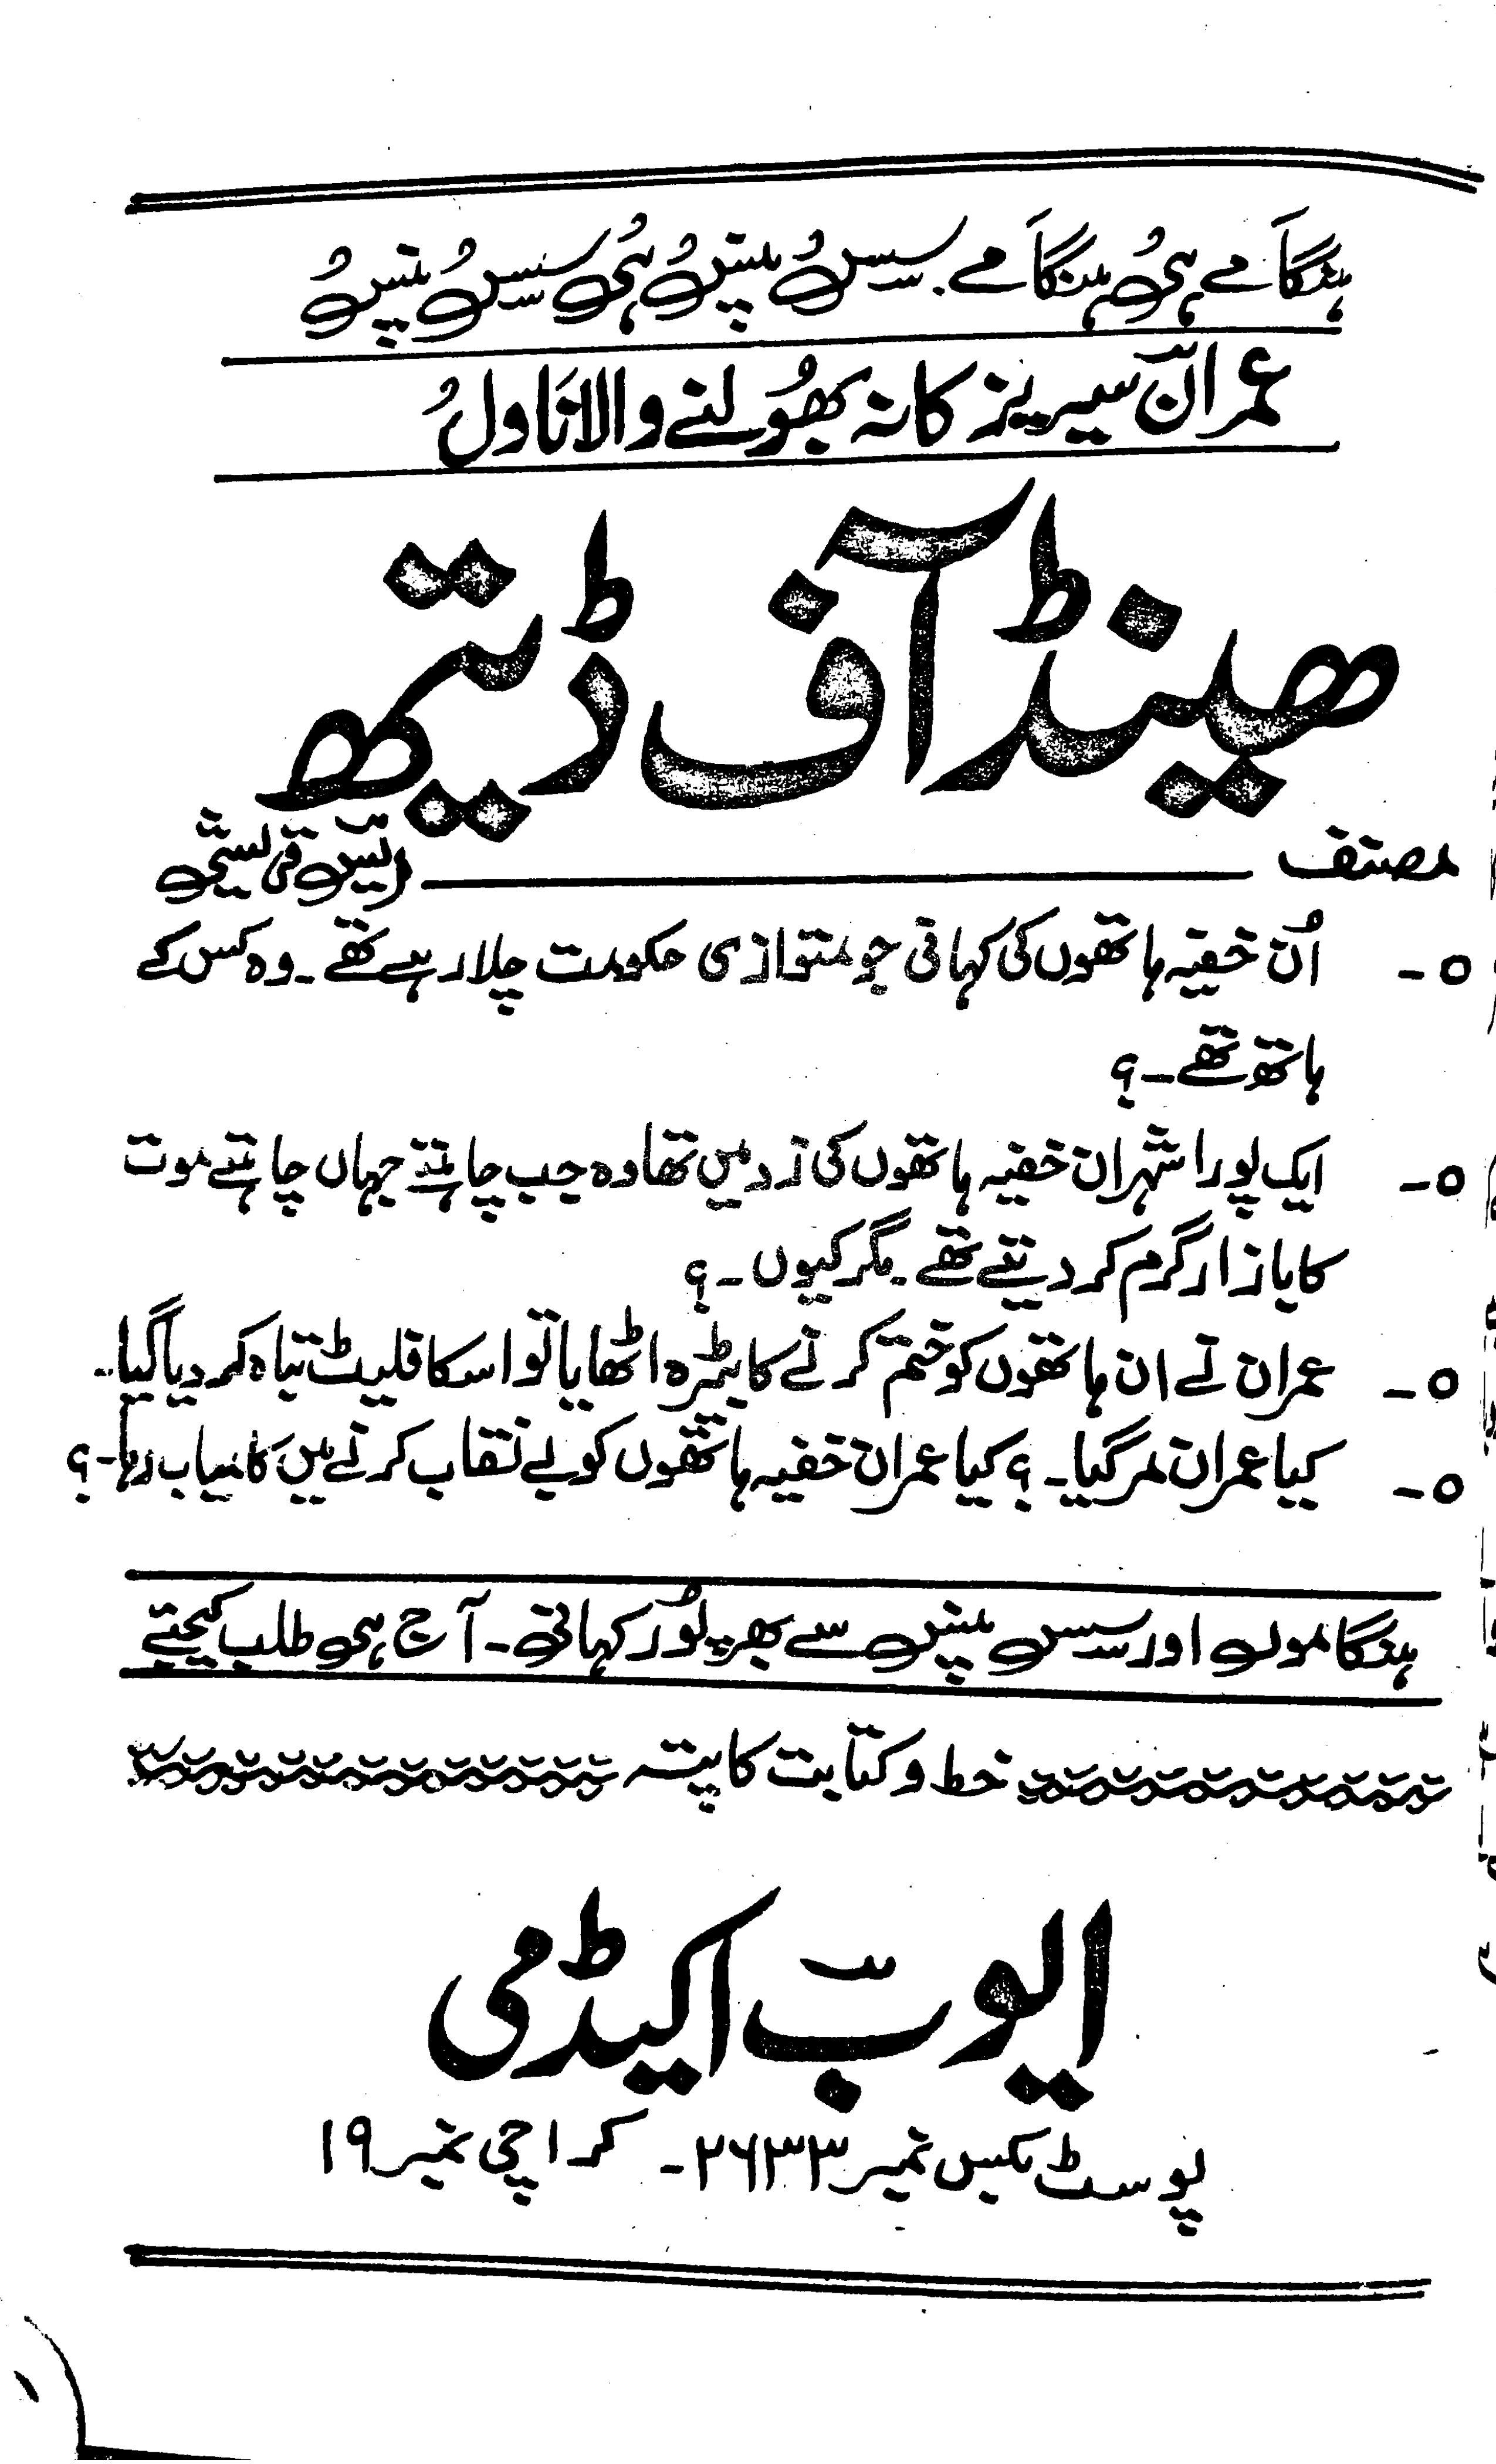 ہنگامے ہی ہنگامے۔ سسپنس ہی سسپنس
عمران سیریز کا نہ بھولنے والا ناول
ہینڈ آف ڈیتھ
مصنف ـــــ رئیس قریشی
۵۔ اُن خفیہ ہاتھوں کی کہانی جو متوازی حکومت چلا رہے تھے۔ وہ کس کے
ہاتھ تھے۔؟
۵۔ ایک پورا شہر ان خفیہ ہاتھوں کی زد میں تھا وہ جب چاہتے جہاں چاہتے موت
کا بازار گرم کر دیتے تھے۔ مگر کیوں۔؟
۵۔ عمران نے ان ہاتھوں کو ختم کرنے کا بیڑہ اٹھایا تو اسکا فلیٹ تباہ کر دیا گیا۔
۵۔ کیا عمران مر گیا۔؟ کیا عمران خفیہ ہاتھوں کو بے نقاب کرنے میں کامیاب رہا۔؟
ہنگاموں اور سسپنس سے بھرپور کہانی۔ آج ہی طلب کیجئے
خط و کتابت کا پتہ
ایوب اکیڈمی
پوسٹ بکس نمبر ۲۶۳۳۔ کراچی نمبر ۱۹